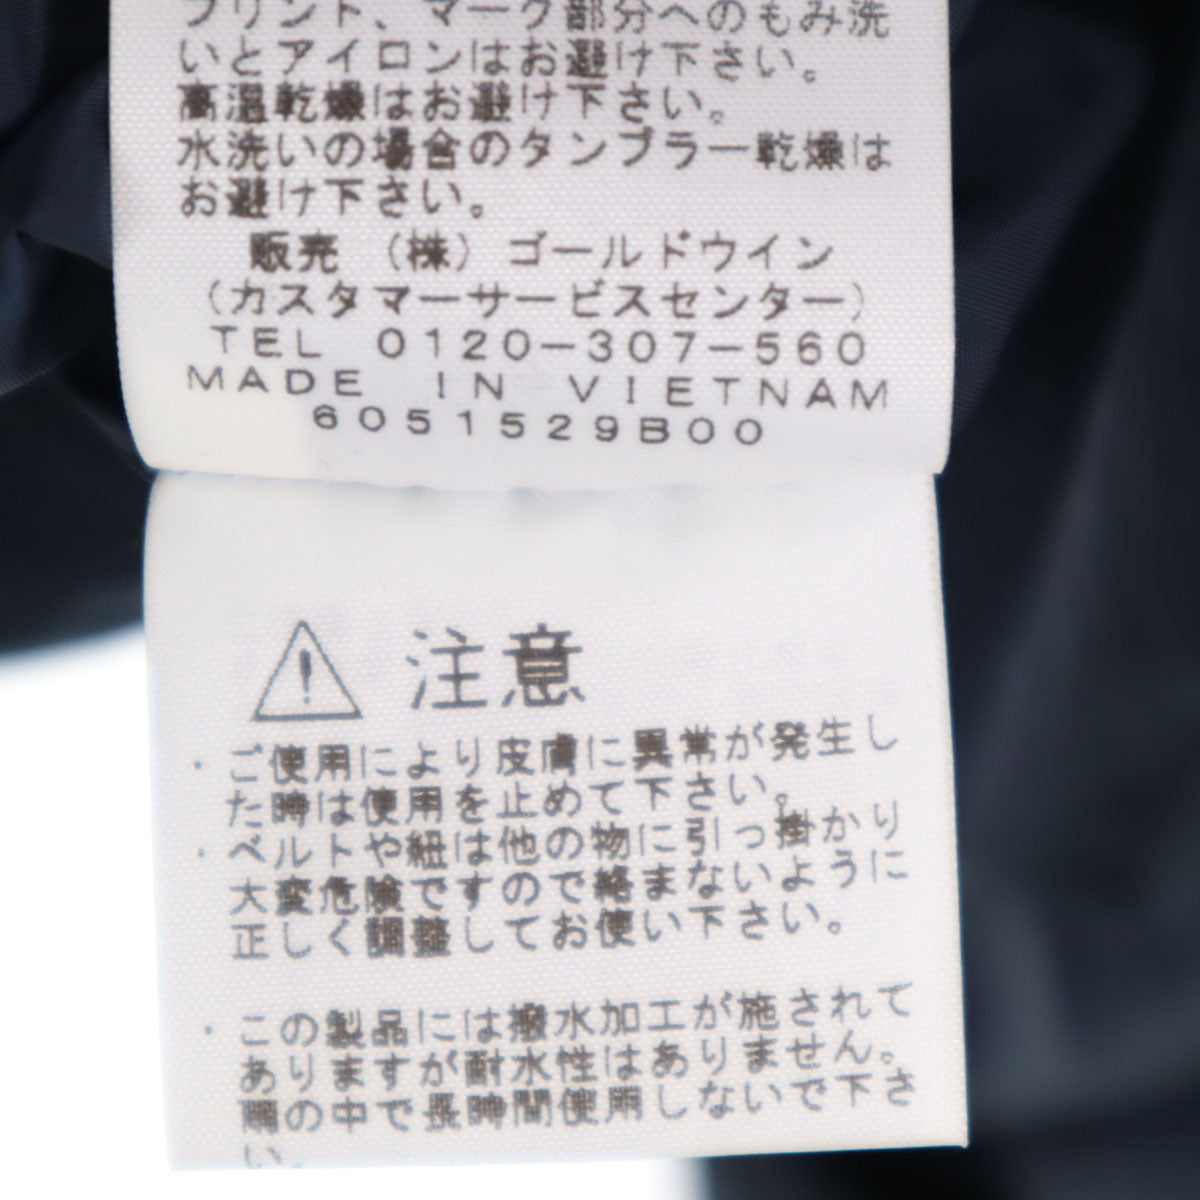 プリント、マーク部分へのもみ洗
いとアイロンはお避け下さい。
高温乾燥はお避け下さい。
水洗いの場合のタンブラー乾燥は
お避け下さい。
販売 (株) ゴールドウイン
(カスタマーサービスセンター)
TEL 0120-307-560
MADE IN VIETNAM
6051529B00
注意
・ご使用により皮膚に異常が発生し
た時は使用を止めて下さい。
・ベルトや紐は他の物に引っ掛かり
大変危険ですので絡まないように
正しく調整してお使い下さい。
・この製品には撥水加工が施されて
ありますが耐水性はありません。
雨の中で長時間使用しないで下さ
い。